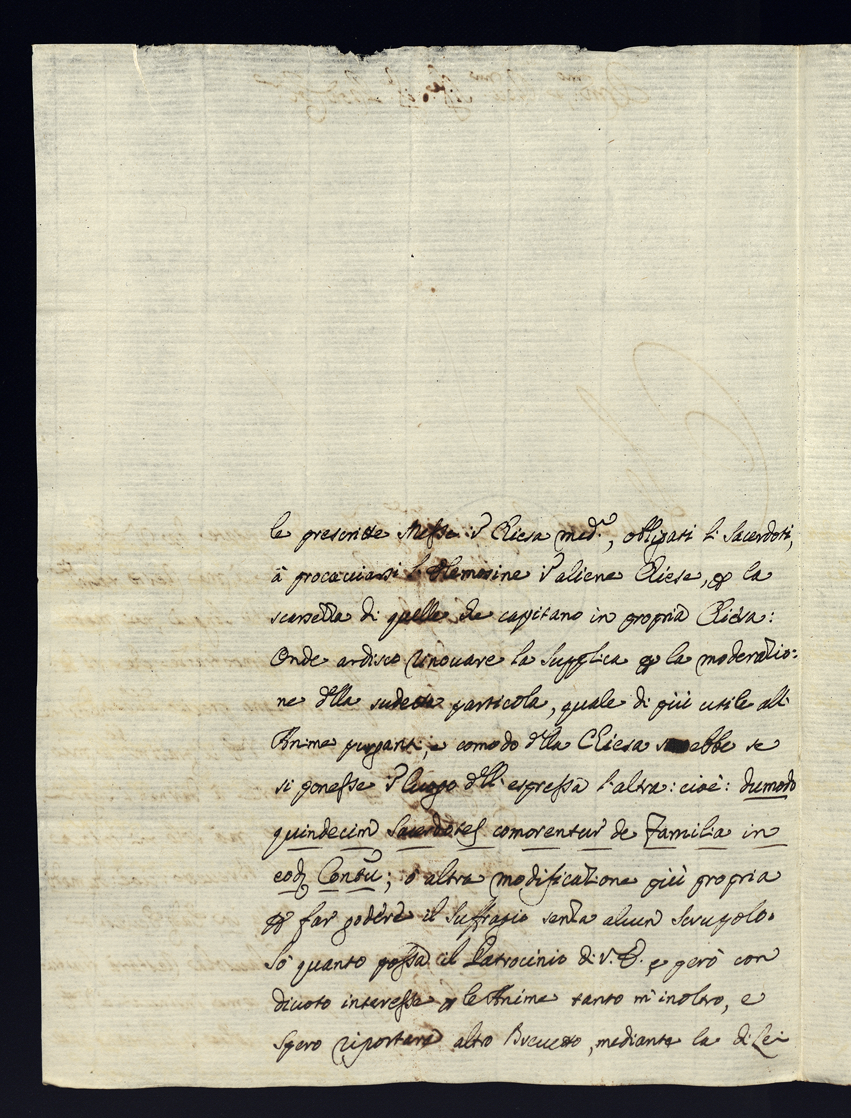 le prescritte Messe i' Chiesa med.ª, obligati li Sacerdoti,
à procacciarsi l'Elemosine i' aliene Chiese, p la
scarsezza di quelle che capitano in propria Chiesa:
Onde ardisco rinovare la supplica p la moderatio:
ne d'lla sudetta particola, quale di più utile all'
Anime purganti, e comodo d'lla Chiesa sarebbe se
si ponesse i' luogo d'll' espressa l'altra: cioè: dumodo
quindecim Sacerdotes comorentur de Familia in
eod. Contu; ò altra modificatione più propria
p far godere il suffragio senza alcun scrupolo.
Sò quanto possa il Patrocinio di V.P. e però con
divoto interesse p le Anime tanto m'inoltro, e
spero riportare altro Breuetto, mediante la di Lei